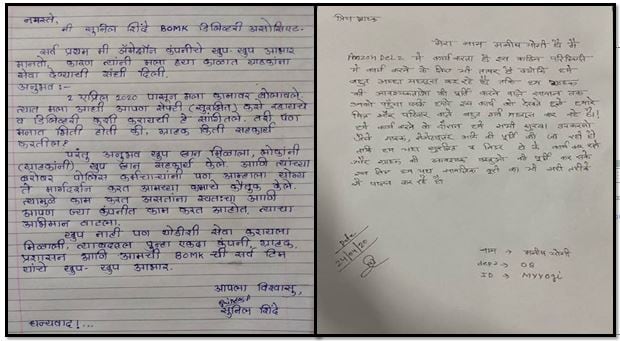 नमस्ते,
मी सुनिल शिंदे BOMK डिलिव्हरी असोसिएट.
सर्व प्रथम मी अ‍ॅमेझॉन कंपनीचे खुप-खुप आभार
मानतो, कारण त्यांनी मला ह्या काळात ग्राहकांना
सेवा देण्याची संधी दिली.
अनुभव :-
२ एप्रिल 2020 पासून मला कामावर बोलावले
त्यात मला आधी आपण सेफ्टी (सुरक्षित) कसे रहायचे
व डिलिव्हरी कशी करायची हे सांगितले. तरी पण
मनात भिती होती की, ग्राहक किती सहकार्य
करतील?
परंतु अनुभव खुप छान मिळाला, लोकांनी
(ग्राहकांनी) खुप छान सहकार्य केले. आणि त्यांच्या
बरोबर पोलिस कर्मचाऱ्यांनी पण आम्हाला योग्य
ते मार्गदर्शन करत आमच्या कामाचे कौतुक केले.
त्यामुळे काम करत असताना स्वतःचा आणि
आपण ज्या कंपनीत काम करत आहोत, त्याचा
अभिमान वाटला.
खुप नाही पण थोडीशी सेवा करायला
मिळाली, त्याबद्दल पुन्हा एकदा कंपनी, ग्राहक,
प्रशासन आणि आमची BOMK ची सर्व टिम
यांचे खुप-खुप आभार.
आपला विश्वासु,
सुनिल शिंदे
धन्यवाद!...
प्रिय ग्राहक
मेरा नाम मनीष योगी है मैं
Amazon DEL2 में कार्य करता हूं इस कठिन परिस्थिति
में कार्य करने के लिए भी तत्पर हैं क्योंकि हमें
बहुत अच्छा महसूस कर रहे हैं ताकि हम ग्राहक
की आवश्यकताओं की पूर्ति करने वाले सामान तक
उनको पहुंचा सके हमारे इस कार्य को देखते हुये हमारे
मित्र और परिवार वाले बहुत गर्व महसूस कर रहे हैं!
हमें कार्य करने के दौरान हमें सभी सुरक्षा उपकरणों
जैसे मास्क, सेनेटाइजर आदि की पूर्ति की जा रही है
ताकि हम यहां सुरक्षित व निडर हो के कार्य कर सके
और ग्राहक की आवश्यक वस्तुओं की पूर्ति कर सके
इस लिए हम यहां सामाजिक दूरी का भी सही तरीके
से पालन कर रहे हैं
Date
24/04/20
नाम → मनीष योगी
dept → OB
ID → MYYogi